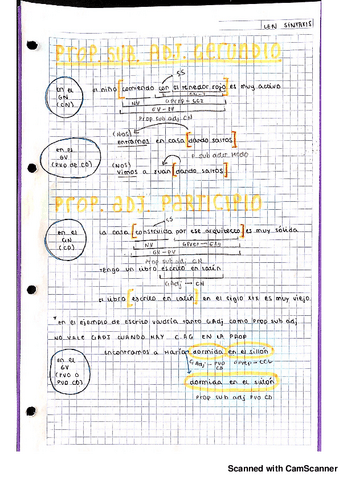 LEN SINTAXIS
PROP. SUB. ADJ. GERUNDIO
SS
en el GN (CN)
el niño [comiendo con el tenedor rojo] es muy activo
NV
GV - PV
Prop sub adj CN
(NOS)
en el GV (PVO de CD)
entramos en casa [dando saltos]
P. sub adv. MODO
(NOS)
Vimos a Juan [dando saltos]
PROP. ADJ PARTICIPIO
SS
en el GN (CD)
La casa [construida por ese arquitecto] es muy sólida
NV
GV - PV
Prop sub adj CN
Tengo un libro escrito en latín
GAdj → CN
El libro [escrito en latín] en el siglo XIX es muy viejo
* en el ejemplo de escrito valdría tanto GAdj como prop sub adj
NO VALE GADJ CUANDO HAY C.AG EN LA PROP
en el GV (PVO o PVO CD)
Encontramos a María dormida en el sillón
GAdj - PVO CD
dormida en el sillón
prop sub adj PVO CD
Scanned with CamScanner